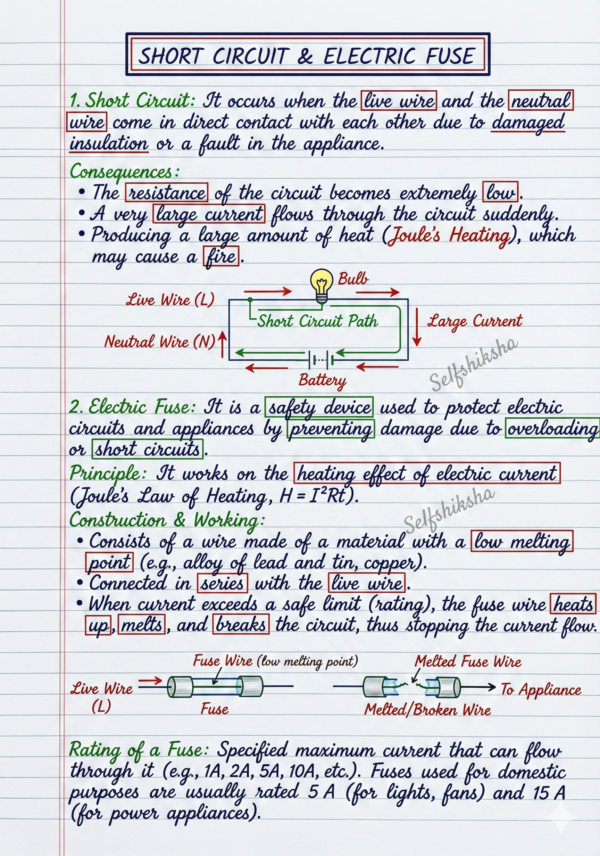 SHORT CIRCUIT & ELECTRIC FUSE
1. Short Circuit: It occurs when the live wire and the neutral
wire come in direct contact with each other due to damaged
insulation or a fault in the appliance.
Consequences:
• The resistance of the circuit becomes extremely low.
• A very large current flows through the circuit suddenly.
• Producing a large amount of heat (Joule's Heating), which
may cause a fire.
Bulb
Live Wire (L)
Short Circuit Path
Large Current
Neutral Wire (N)
Battery
Selfshiksha
2. Electric Fuse: It is a safety device used to protect electric
circuits and appliances by preventing damage due to overloading
or short circuits.
Principle: It works on the heating effect of electric current
(Joule's Law of Heating, H = I²Rt).
Selfshiksha
Construction & Working:
• Consists of a wire made of a material with a low melting
point (e.g., alloy of lead and tin, copper).
• Connected in series with the live wire.
• When current exceeds a safe limit (rating), the fuse wire heats
up, melts, and breaks the circuit, thus stopping the current flow.
Fuse Wire (low melting point)
Melted Fuse Wire
Live Wire
(L)
To Appliance
Fuse
Melted/Broken Wire
Rating of a Fuse: Specified maximum current that can flow
through it (e.g., 1A, 2A, 5A, 10A, etc.). Fuses used for domestic
purposes are usually rated 5 A (for lights, fans) and 15 A
(for power appliances).